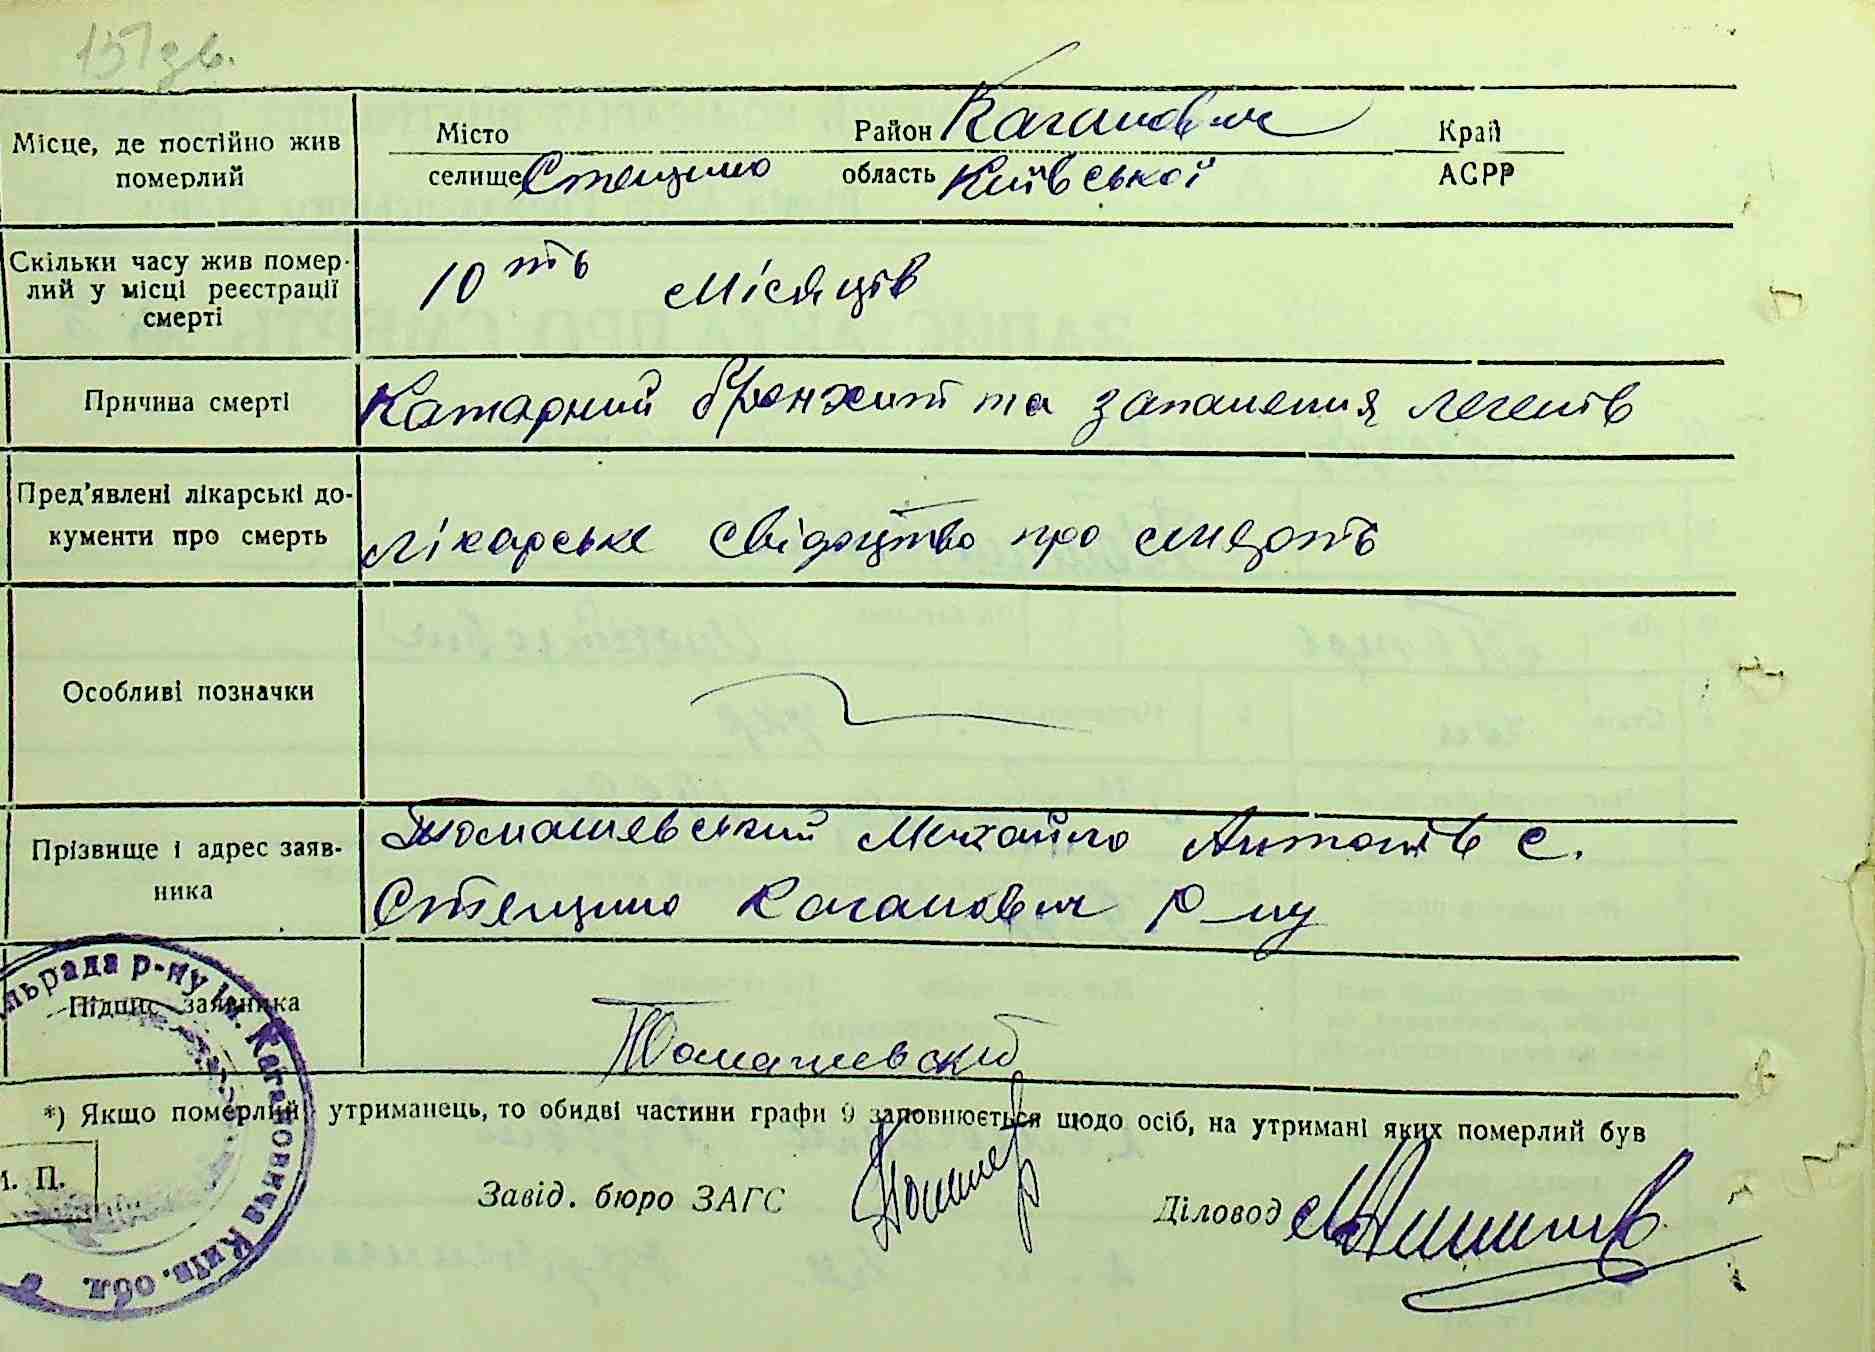 151 зв.
Місце, де постійно жив померлий
Місто
Район Каганович
Край
селище Стещино
область Київської
АСРР
Скільки часу жив помер-
лий у місці реєстрації
смерті
10 ть місяців
Причина смерті
Катарний бронхит та запалення легенів
Пред'явлені лікарські до-
кументи про смерть
лікарське свідоцтво про смерть
Особливі позначки
Прізвище і адрес заяв-
ника
Томашевський Михайло Антонів с.
Стещино Каганович р-ну
Підпис заявника
Томашевский
*) Якщо померлий утриманець, то обидві частини графи 9 заповнюється щодо осіб, на утримані яких померлий був
М. П.
Завід. бюро ЗАГС
Діловод
льрада р-ну ім. Кагановича Київ. обл.